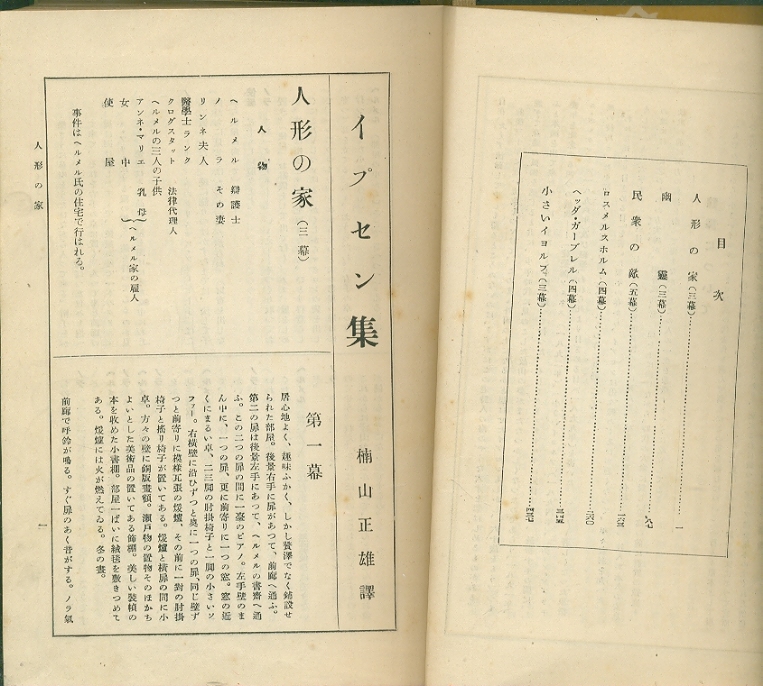 目次
人形の家(三幕)……一
幽靈(三幕)
民衆の敵(五幕)……一六三
ロスメルスホルム(四幕)……二六〇
ヘッダ・ガーブレル(四幕)……三四五
小さいイョルフ(三幕)……四三七
イプセン集
楠山正雄譯
人形の家(三幕)
人物
ヘルメル 辯護士
ノラ その妻
リンネ夫人
醫學士ランク
クログスタット 法律代理人
ヘルメルの三人の子供
アンネ・マリエ 乳母
女中
ヘルメル家の雇人
使屋
事件はヘルメル氏の住宅で行はれる。
第一幕
居心地よく、趣味ふかく、しかし贅澤でなく鋪設せ
られた部屋。後景右手に扉があつて、前廊へ通ふ。
第二の扉は後景左手にあつて、ヘルメルの書齋へ通
ふ。この二つの扉の間に一臺のピアノ。左手壁のま
ん中に、一つの扉、更に前寄りに一つの窓。窓の近
くにまるい卓、二三脚の肘掛椅子と一脚の小さいソ
ファー。右橫壁に沿ひずつと奥に一つの扉、同じ壁ず
つと前寄りに模樣瓦張の煖爐、その前に一對の肘掛
椅子と搖り椅子が置いてある。煖爐と橫扉の間に小
卓。方々の壁に銅版畫額。瀨戸物の置物そのほかち
よいとした美術品の置いてある飾棚。美しい裝幀の
本を收めた小書棚。部屋一ぱいに絨毯を敷きつめて
ある。煖爐には火が燃えてゐる。冬の晝。
前廊で呼鈴が鳴る。すぐ扉のあく音がする。ノラ氣
人形の家
一